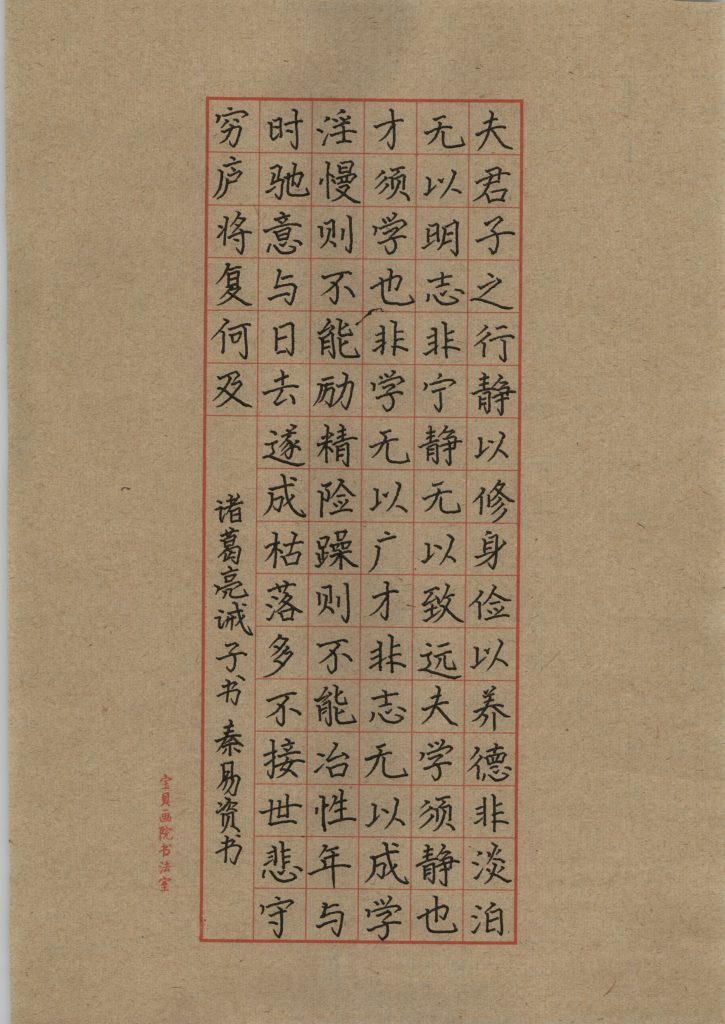 夫君子之行静以修身俭以养德非淡泊
无以明志非宁静无以致远夫学须静也
才须学也非学无以广才非志无以成学
淫慢则不能励精险躁则不能冶性年与
时驰意与日去遂成枯落多不接世悲守
穷庐将复何及
诸葛亮诫子书 秦易资书
宝贝画院书法室